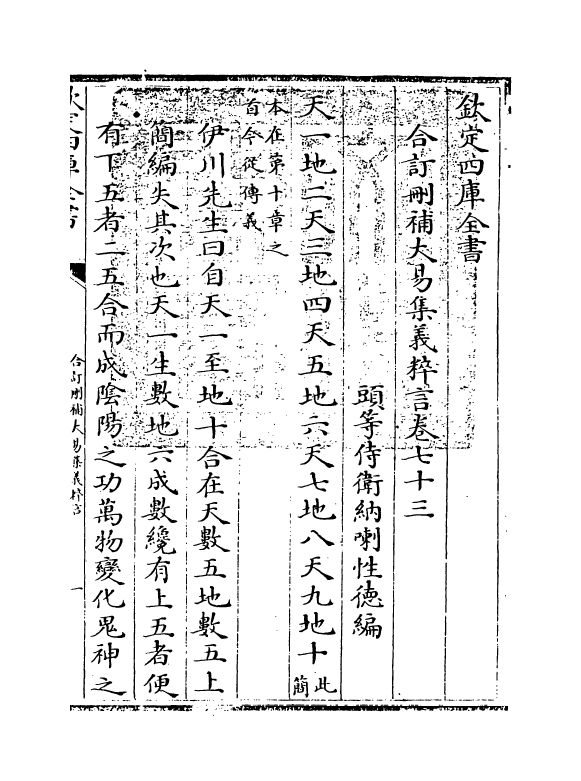 欽定四庫全書
合訂刪補大易集義粹言卷七十三
頭等侍衛納喇性徳編
天一地二天三地四天五地六天七地八天九地十此
簡
本在第十章之
首今從傳義
伊川先生曰自天一至地十合在天數五地數五上
簡編失其次也天一生數地六成數纔有上五者便
有下五者二五合而成隂陽之功萬物變化鬼神之
欽定四庫全書
合訂刪補大易集義粹言
一